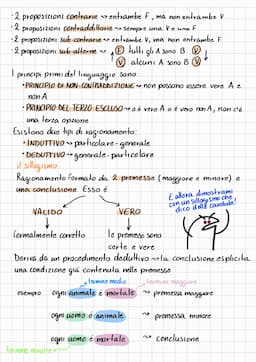 · 2 proposizioni contrarie → entrambe F, ma non entrambe V
· 2 proposizioni contraddittorie → sempre una V e una F
· 2 proposizioni sub contrarie → entrambe V, ma non entrambe F
· 2 proposizioni sub alterne → F tutti gli A sono B V
V alcuni A sono B V
I principi primi del linguaggio sono:
· PRINCIPIO DI NON CONTRADDIZIONE → non possono essere vere A e
non A
· PRINCIPIO DEL TERZO ESCLUSO → o è vero A o è vero A non, non c'è
una terza opzione
Esistono due tipi di ragionamento:
· INDUTTIVO → particolare - generale
· DEDUTTIVO → generale - particolare
il sillogismo
Ragionamento formato da 2 premesse (maggiore e minore) e
una conclusione. Esso è
VALIDO
VERO
E allora dimostrami
con un sillogismo che
dico delle
formalmente corretto
le premesse sono
certe e vere
Deriva da un procedimento deduttivo → la conclusione esplicita
una condizione già contenuta nelle premesse
termine medio
termine maggiore
esempio ogni animale è mortale → premessa maggiore
ogni uomo è animale → premessa minore
ogni uomo è mortale → conclusione
termine minore